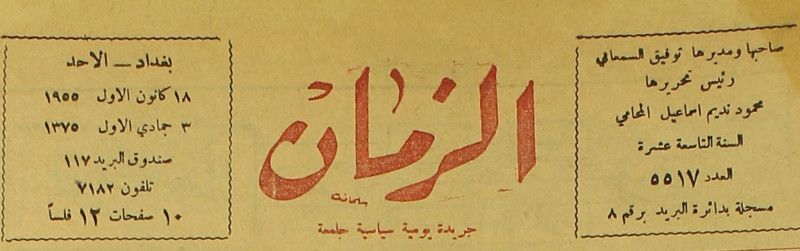 صاحبها ومديرها توفيق السمعاني
رئيس تحريرها
محمود نديم اسماعيل المحامي
السنة التاسعة عشرة
العدد ٥٥١٧
مسجلة بدائرة البريد برقم ٨
الزمان
جريدة يومية سياسية جامعة
بغداد — الاحد
١٨ كانون الاول ١٩٥٥
٣ جمادي الاول ١٣٧٥
صندوق البريد ١١٧
تلفون ٧١٨٢
١٠ صفحات ١٢ فلساً